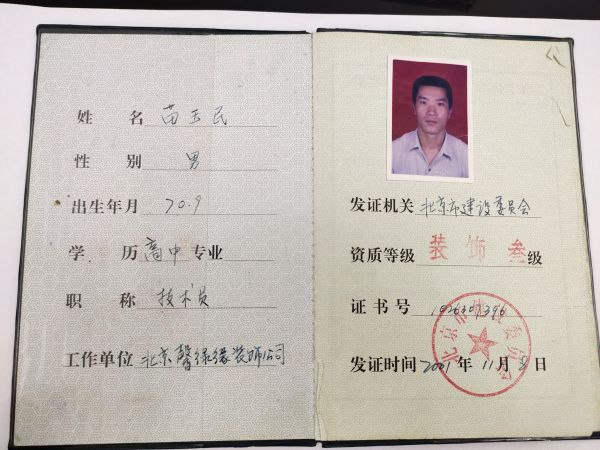 姓名 苗玉民
性别 男
出生年月 70.9
学历 高中 专业
职称 技术员
工作单位 北京馨缘缘装饰公司
发证机关 北京市建设委员会
资质等级 装饰叁级
证书号
发证时间 2001年11月8日